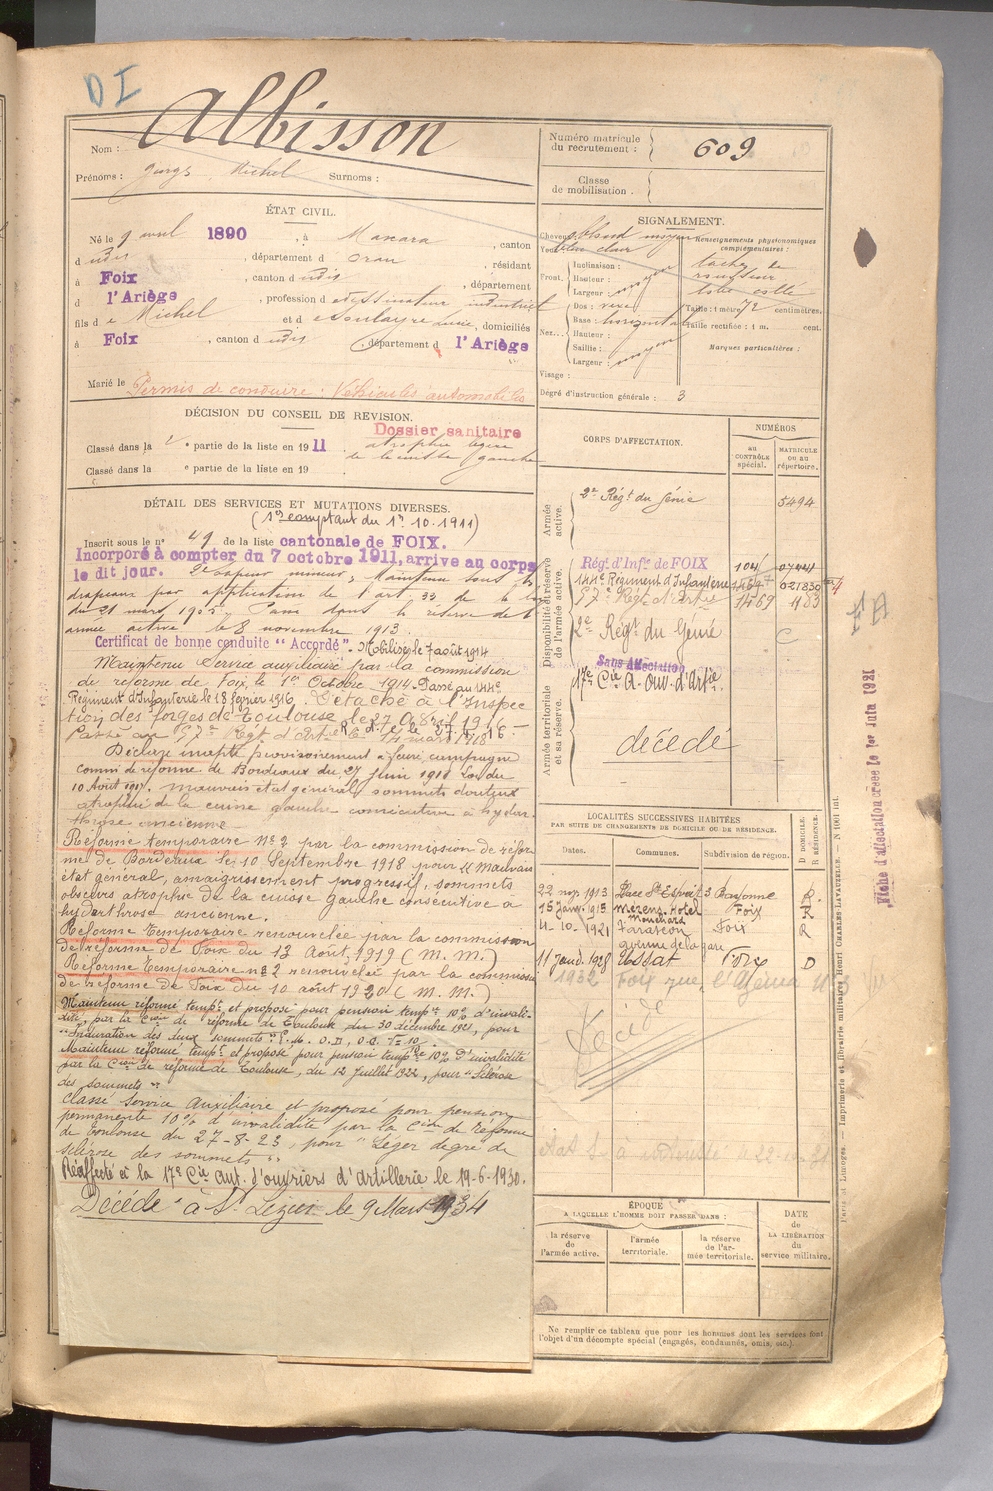 D I
Nom : Albisson
Prénoms : Michel Surnoms :
Numéro matricule
du recrutement : 609
Classe
de mobilisation :
ÉTAT CIVIL.
Né le 9 avril 1890, à Mascara, canton
d udis, département d Oran, résidant
à Foix, canton d udis, département
d l'Ariège, profession d dessinateur industriel
fils de Michel et de Soulayre Lucie, domiciliés
à Foix, canton d udis, département d l'Ariège
Marié le
Permis de conduire : Véhicules automobiles
DÉCISION DU CONSEIL DE REVISION.
Dossier sanitaire
Classé dans la 2e partie de la liste en 1911
atrophie légère
de la cuisse gauche
Classé dans la e partie de la liste en 19
DÉTAIL DES SERVICES ET MUTATIONS DIVERSES.
(1er comptant du 1er 10.1911)
Inscrit sous le n° 49 de la liste cantonale de FOIX.
Incorporé à compter du 7 octobre 1911, arrive au corps
le dit jour. 2e sapeur mineur, Maintenu sous les
drapeaux par application de l'art 33 de la loi
du 21 mars 1905. Passé dans la réserve de l'
armée active le 8 novembre 1913.
Certificat de bonne conduite "Accordé". Mobilisé le 7 août 1914
Maintenu Service auxiliaire par la commission
de réforme de Foix, le 1er Octobre 1914. Passé au 144e
Régiment d'Infanterie le 18 février 1916. Détaché à l'Inspec
tion des forges de Toulouse le 27 Avril 1916
Passé au 57e Régt d'Artie le 4 mars 1918
Déclaré inepte provisoirement à faire campagne
commi de réforme de Bordeaux du 27 juin 1918
10 Août 1917. mauvais état général, sommets douteux
atrophie de la cuisse gauche consécutive à hydar-
throse ancienne
Réforme temporaire N° 2 par la commission de réfor
me de Bordeaux le 10 Septembre 1918 pour "Mauvais
état général, amaigrissement progressif, sommets
obscurs atrophie de la cuisse gauche consécutive à
hydarthrose ancienne.
Réforme temporaire renouvelée par la commission
de réforme de Foix du 13 Août 1919 (M. M.)
Réforme temporaire n° 2 renouvelée par la commission
de réforme de Foix du 10 août 1920 (M. M.)
Maintenu réformé tempre et proposé pour pension tempre 10% d'invali-
dité, par la Cion de réforme de Toulouse du 30 décembre 1921, pour
"Induration des deux sommets"
Maintenu réformé tempre et proposé pour pension tempre 10% d'invalidité
par la Cion de réforme de Toulouse, du 12 Juillet 1922, pour "Sclérose
des sommets"
Classé Service Auxiliaire et proposé pour pension
permanente 10% d'invalidité par la Cion de réforme
de Toulouse du 27-8-23, pour "Léger degré de
sclérose des sommets"
Réaffecté à la 17e Cie aut. d'ouvriers d'artillerie le 19-6-1930.
Décédé à St Lizier le 9 Mars 1934
SIGNALEMENT.
Cheveux blond moyen
Yeux bleu clair
Front. Inclinaison :
Hauteur : moyen
Largeur :
Nez. Dos : vexe
Base : horizontal
Hauteur :
Saillie : moyen
Largeur :
Visage :
Renseignements physionomiques
complémentaires :
taches de
rousseur
Taille : 1 mètre 72 centimètres.
Taille rectifiée : 1 m. cent.
Marques particulières :
Degré d'instruction générale : 3
CORPS D'AFFECTATION.
NUMÉROS
au CONTRÔLE spécial.
MATRICULE OU AU répertoire.
Armée active.
2e Régt du Génie 5494
Disponibilité et réserve de l'armée active.
Régt d'Infie de FOIX 104
144e Régiment d'Infanterie
57e Régt d'Artie 483
2e Régt du Génie
Armée territoriale et sa réserve.
Sans Affectation
17e Cie A. Ouv. d'Artie
décédé
LOCALITÉS SUCCESSIVES HABITÉES
PAR SUITE DE CHANGEMENTS DE DOMICILE OU DE RÉSIDENCE.
Dates. Communes. Subdivision de région. D DOMICILE. R RÉSIDENCE.
22 nov 1913 Place St Esprit 3 Bayonne R
15 Janv. 1915 Mezens Hotel Foix R
4-10-1921 Tarascon Foix R
avenue de la gare
11 Janv. 1928 Ussat Foix D
1932 Foix rue
Décédé
ÉPOQUE
A LAQUELLE L'HOMME DOIT PASSER DANS :
la réserve de l'armée active.
l'armée territoriale.
la réserve de l'armée territoriale.
DATE
de
LA LIBÉRATION
du
service militaire.
Ne remplir ce tableau que pour les hommes dont les services font
l'objet d'un décompte spécial (engagés, condamnés, omis, etc.)
Fiche d'affectation créée le 1er Juin 1921
Paris et Limoges. — Imprimerie et librairie militaires Henri CHARLES-LAVAUZELLE.